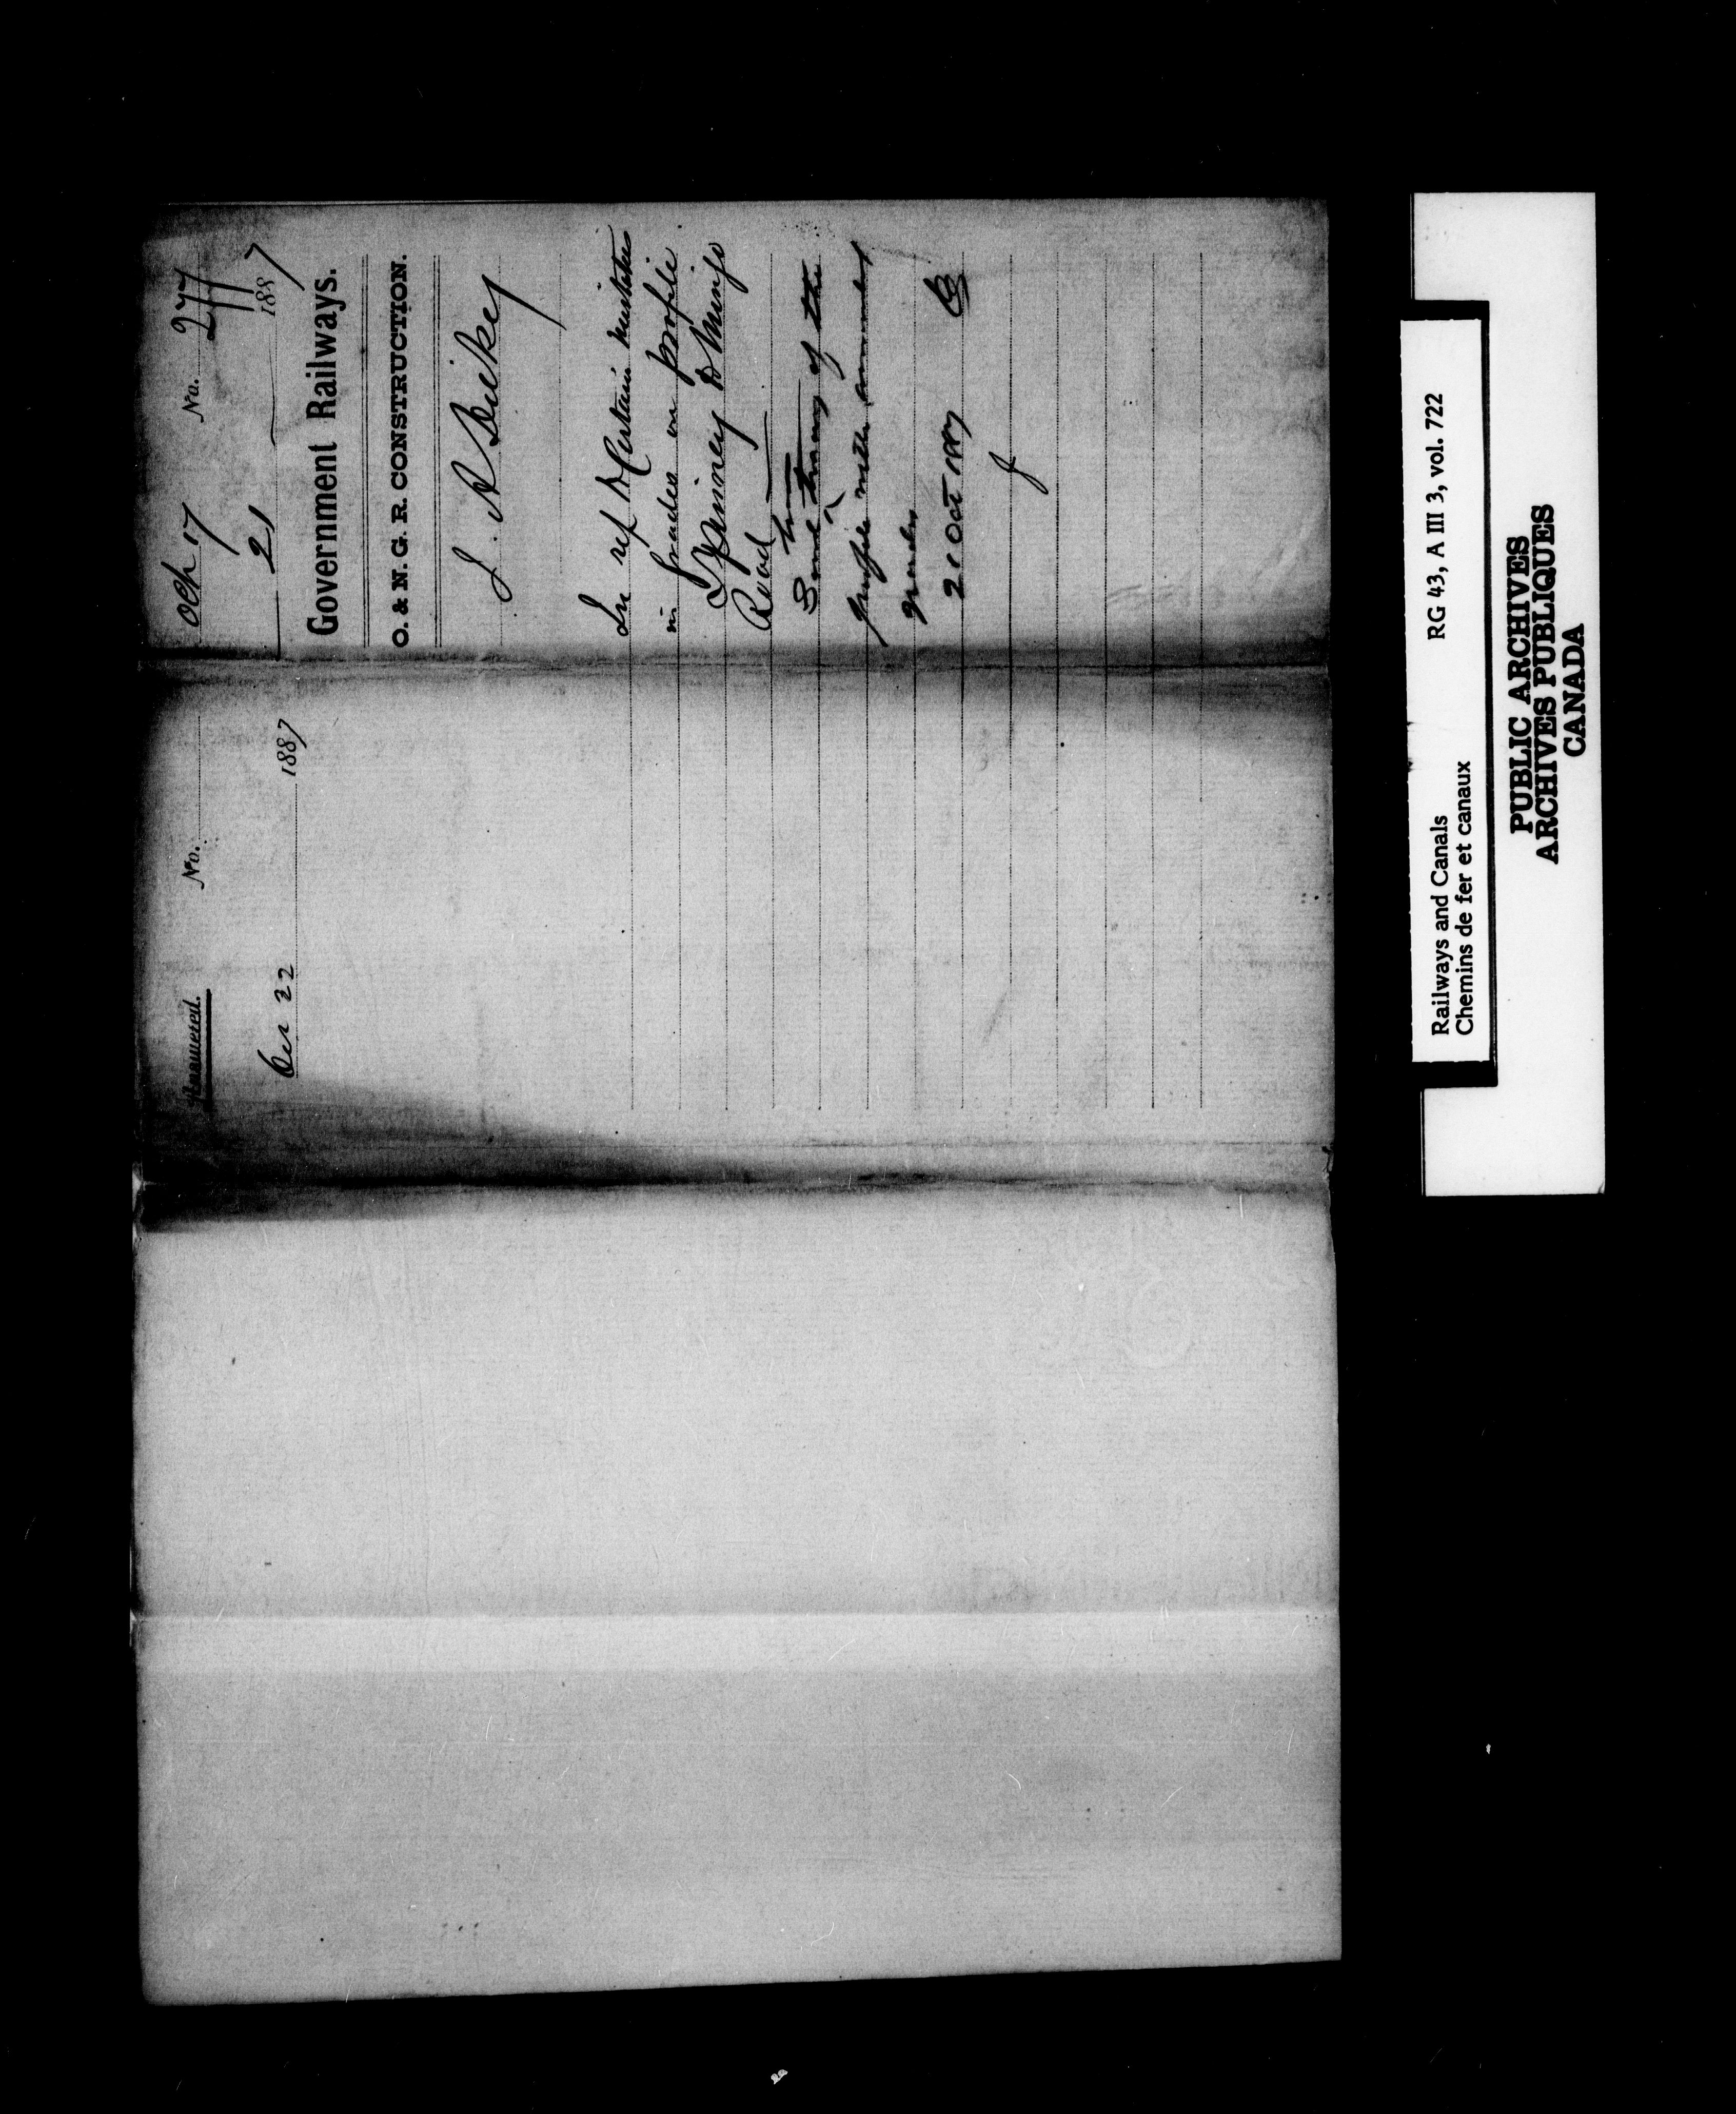 Oct 17 No. 277
21 1887
Government Railways.
O. & N. G. R. CONSTRUCTION.
J. A Dickey
In ref to Certain mistakes
in Grades on profile
Road
him
Send tracing of the
profile with amended
grades
21 Oct 1887
Answered. No.
Oct 22 1887
Railways and Canals RG 43, A III 3, vol. 722
Chemins de fer et canaux
PUBLIC ARCHIVES
ARCHIVES PUBLIQUES
CANADA